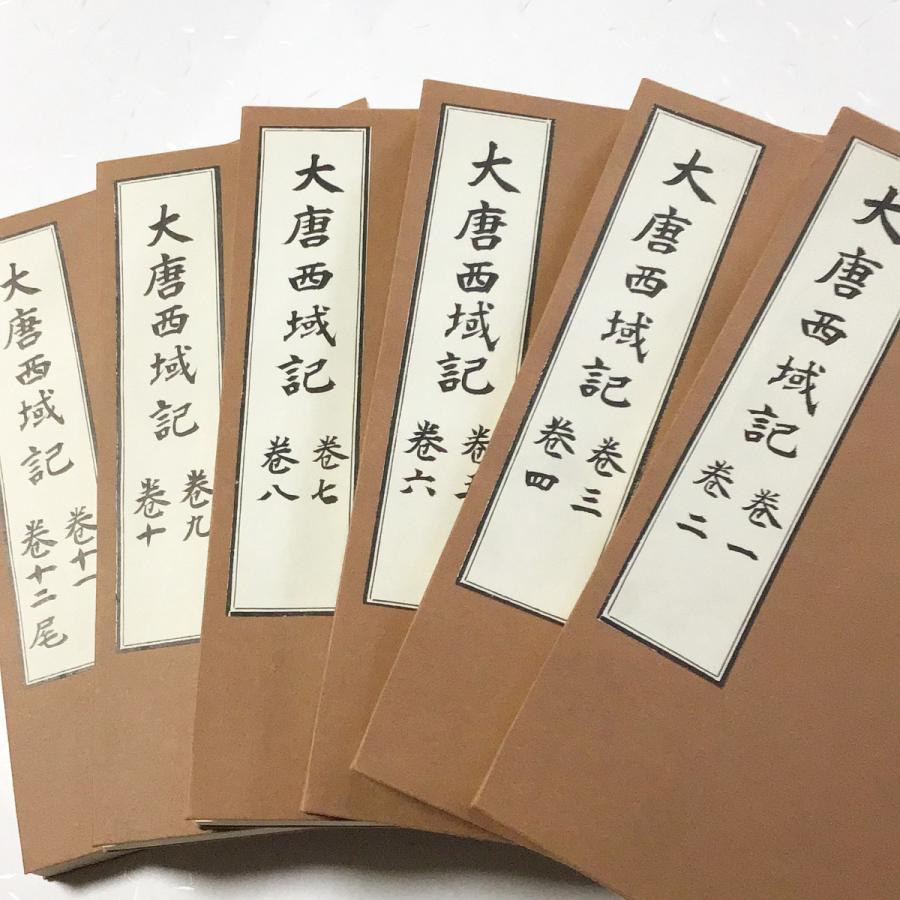 大唐西域記
卷一
卷二
大唐西域記
卷三
卷四
大唐西域記
卷
卷六
大唐西域記
卷七
卷八
大唐西域記
卷九
卷十
大唐西域記
卷十一
卷十二尾